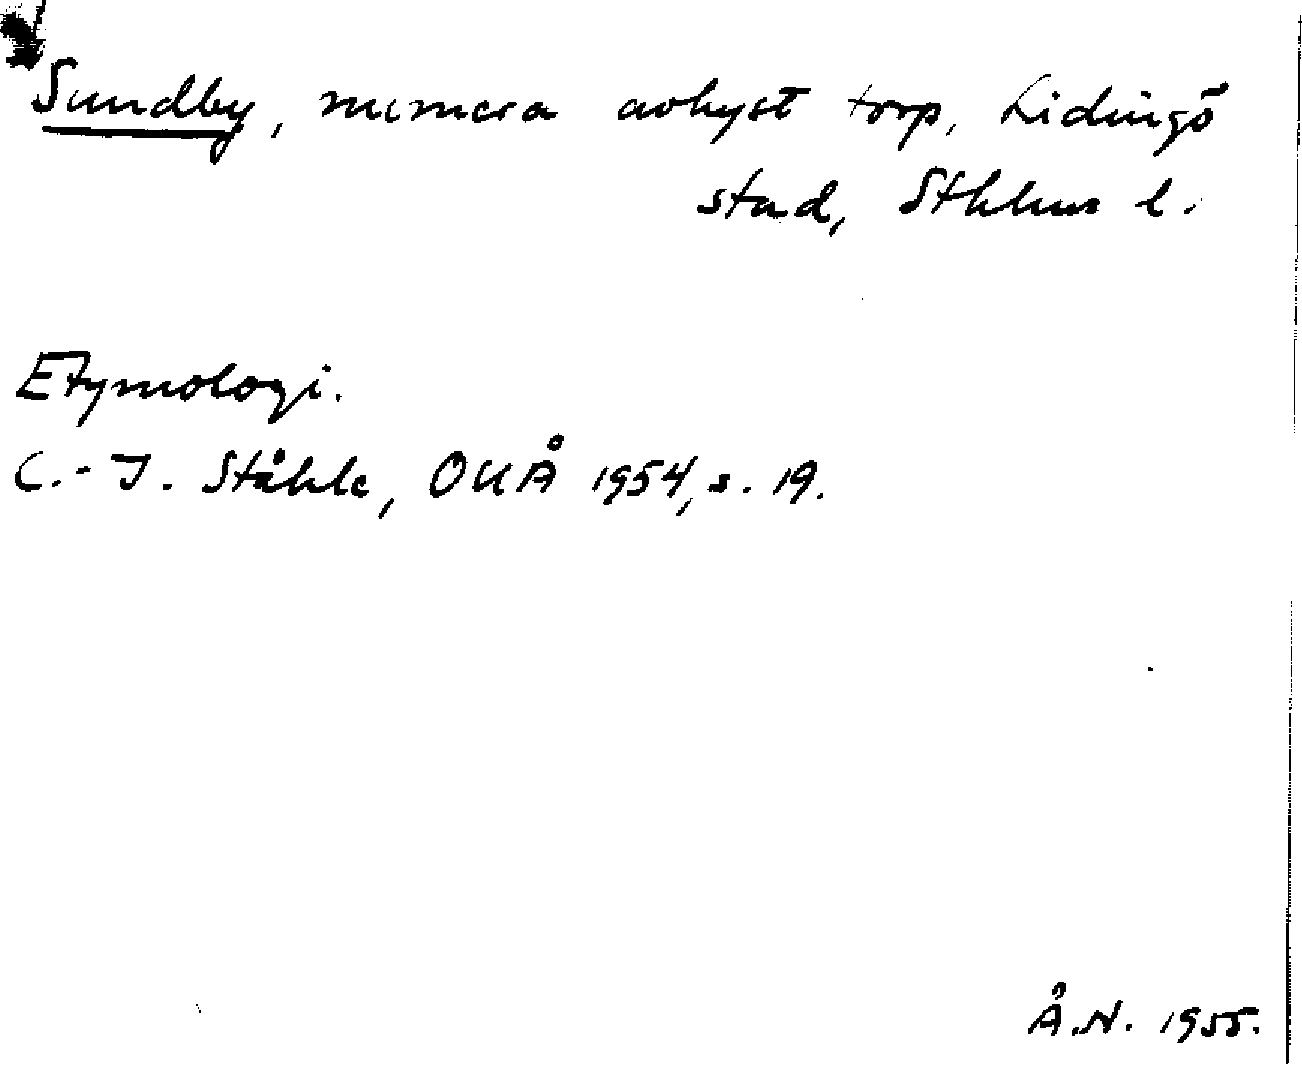 Sundby, numera avhyst torp, Lidingö
stad, Sthlms l.
Etymologi.
C.-I. Ståhle, OUÅ 1954, s. 19.
Å.N. 1955.